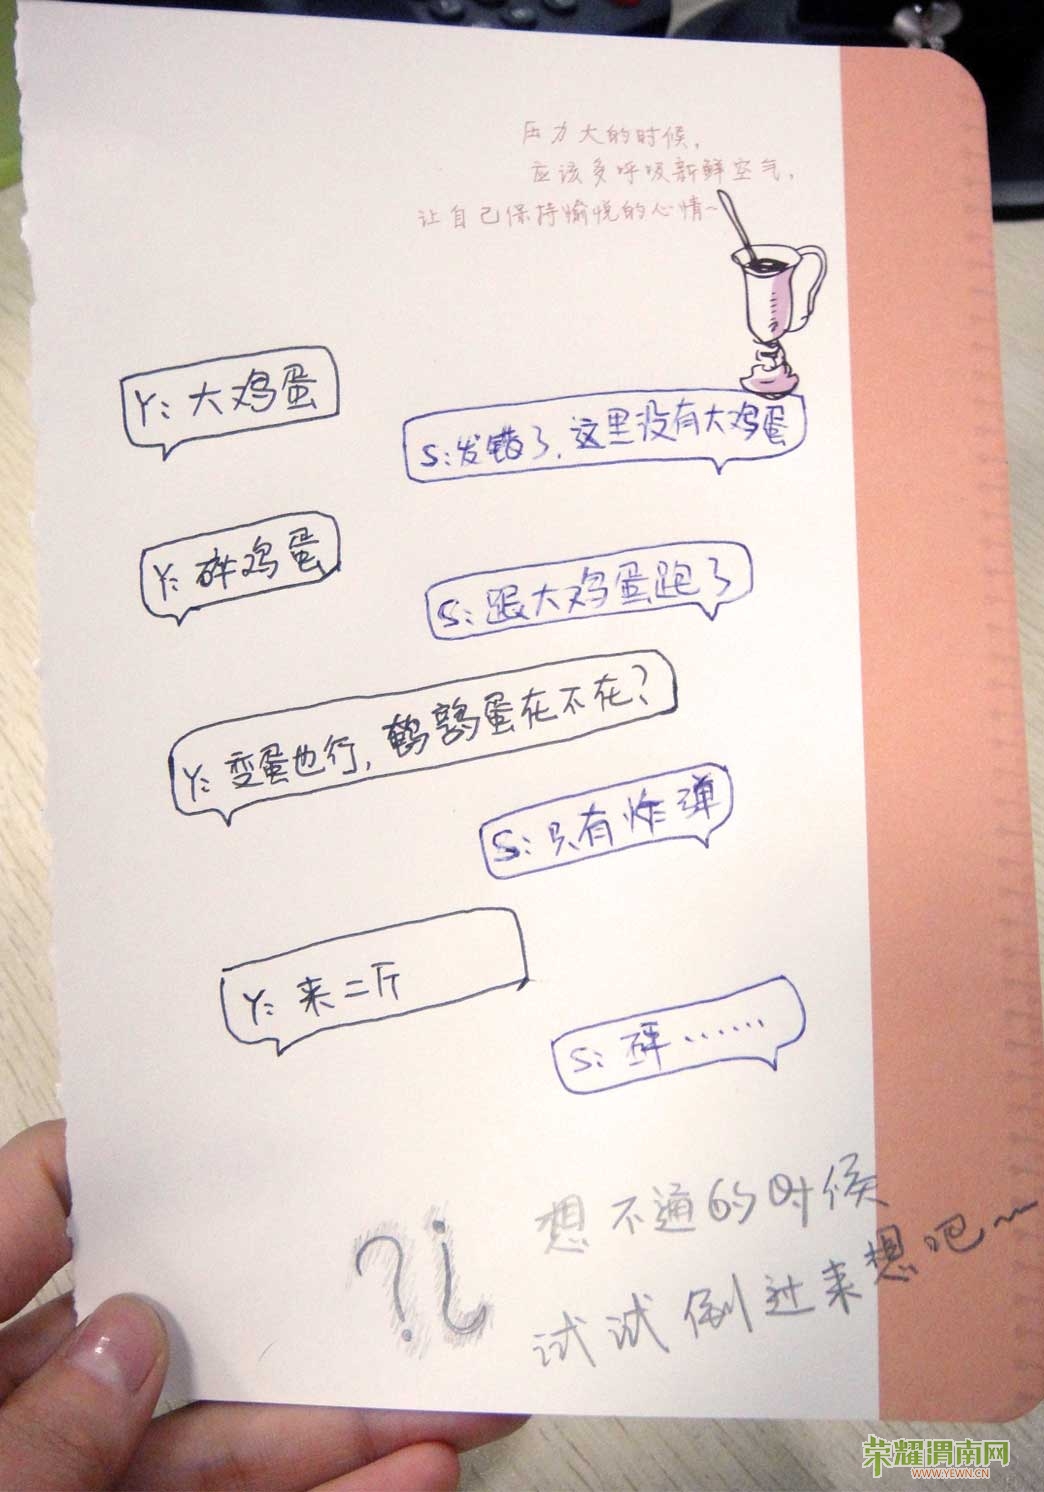 压力大的时候，
应该多呼吸新鲜空气，
让自己保持愉悦的心情~
Y：大鸡蛋
S：发错了，这里没有大鸡蛋
Y：碎鸡蛋
S：跟大鸡蛋跑了
Y：变蛋也行，鹌鹑蛋在不在？
S：只有炸弹
Y：来二斤
S：砰……
?¿
想不通的时候
试试倒过来想吧~
荣耀渭南网
WWW.YEWN.CN